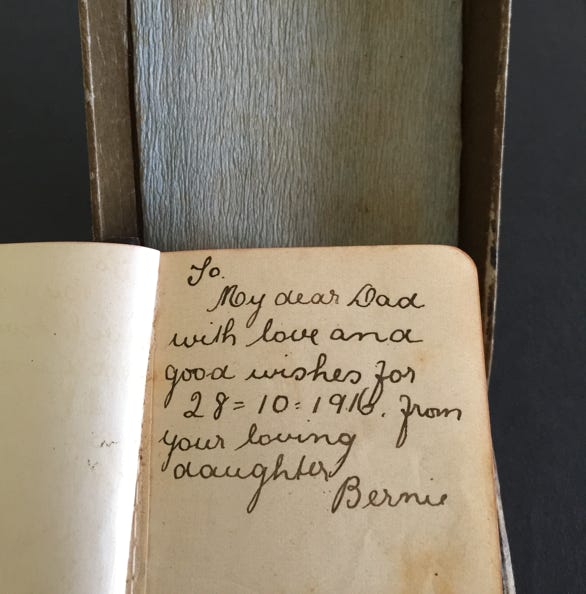 To.
My dear Dad
with love and
good wishes for
28=10=1916. from
your loving
daughter
Bernie